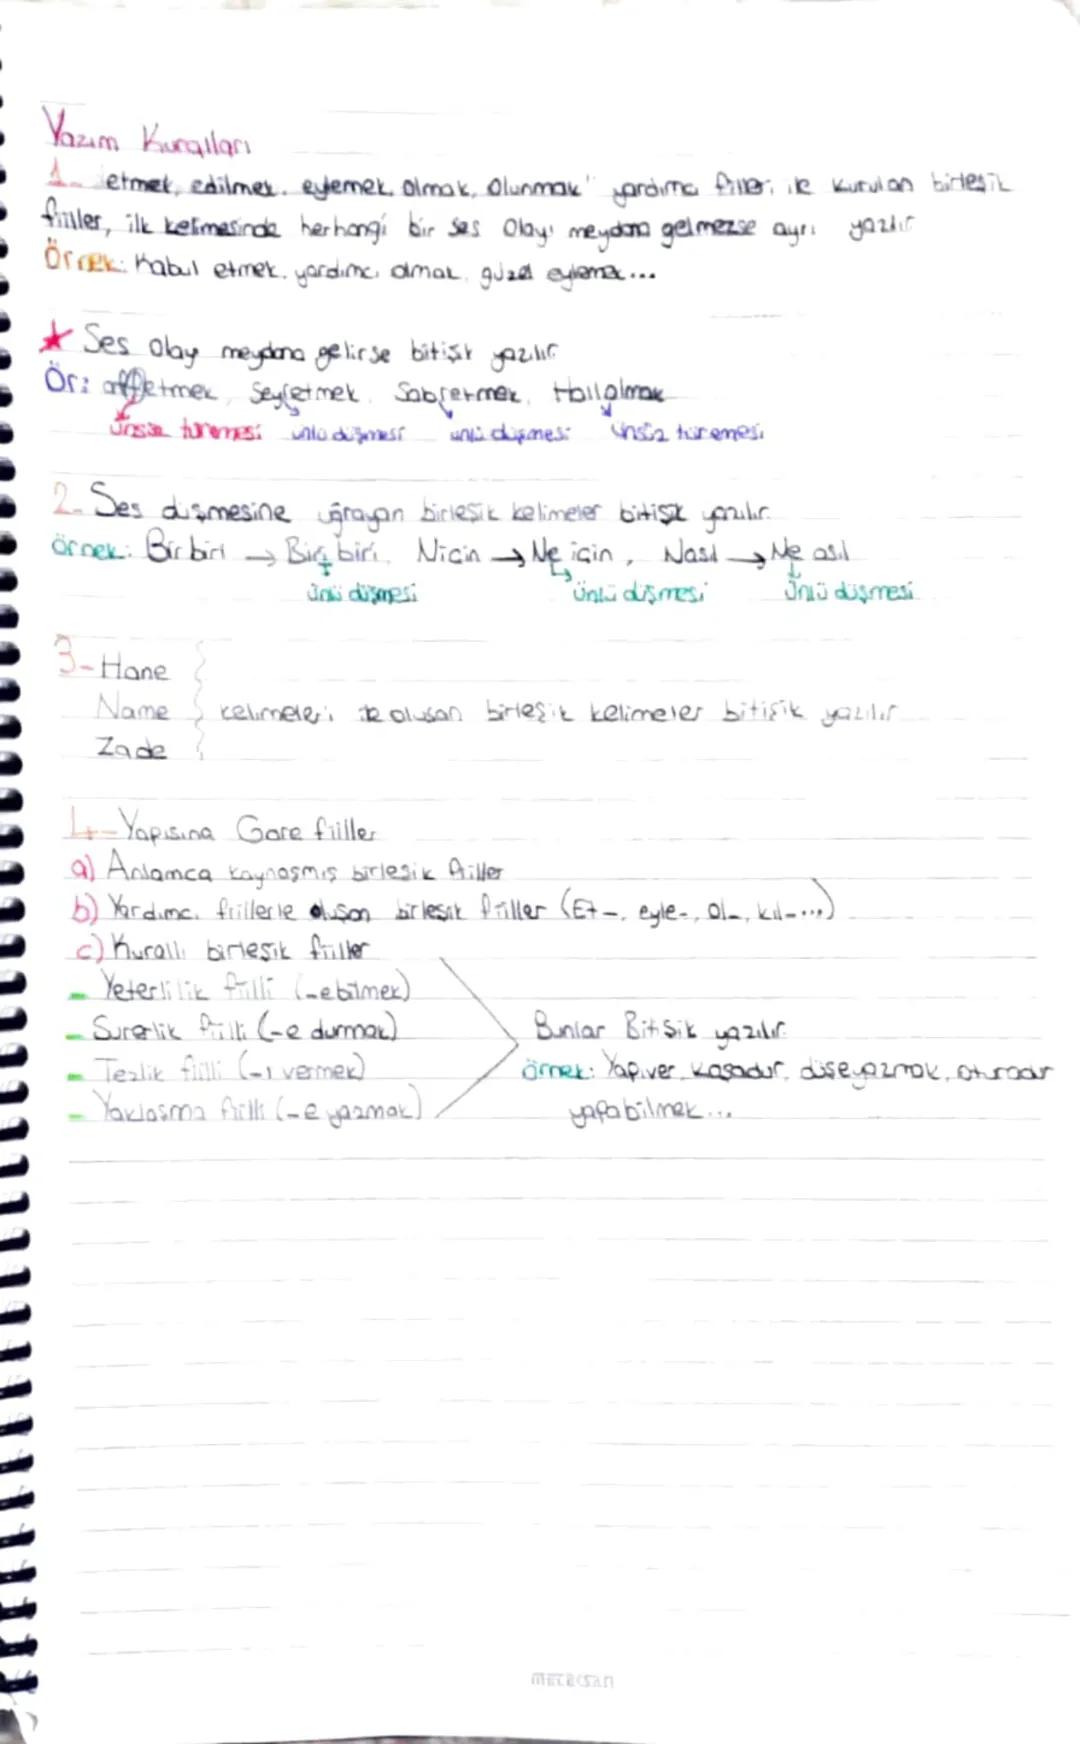 Yazım Kuralları
1- etmek, edilmek, eylemek, olmak, olunmak" yardımcı fiileri ile kurulan birleşik
fiiller, ilk kelimesinde herhangi bir ses olayı meydana gelmezse ayrı yazılır
Örnek: Kabul etmek, yardımcı olmak, güzel eylemek...
★ Ses olayı meydana gelirse bitişik yazılır
Ör: affetmek, Seyretmek, Sabretmek, Hallolmak
ünsüz türemesi ünlü düşmesi ünlü düşmesi ünsüz türemesi
2- Ses düşmesine uğrayan birleşik kelimeler bitişik yazılır.
örnek: Birbiri → Biri biri, Niçin → Ne için, Nasıl → Ne asıl
ünlü düşmesi ünlü düşmesi ünlü düşmesi
3- Hane
Name kelimeleri ile oluşan birleşik kelimeler bitişik yazılır
Zade
4- Yapısına Göre fiiller
a) Anlamca kaynaşmış birleşik fiiller
b) Yardımcı fiillerle oluşan birleşik fiiller (Et-, eyle-, ol-, kıl-...)
c) Kurallı birleşik fiiller
- Yeterlilik fiili (-ebilmek)
- Sürerlik fiili (-e durmak) Bunlar Bitişik yazılır.
- Tezlik fiili (-ı vermek) örnek: Yapıver, koşadur, düşeyazmak, oturadur
- Yaklaşma fiili (-e yazmak) yapabilmek...
meteksan